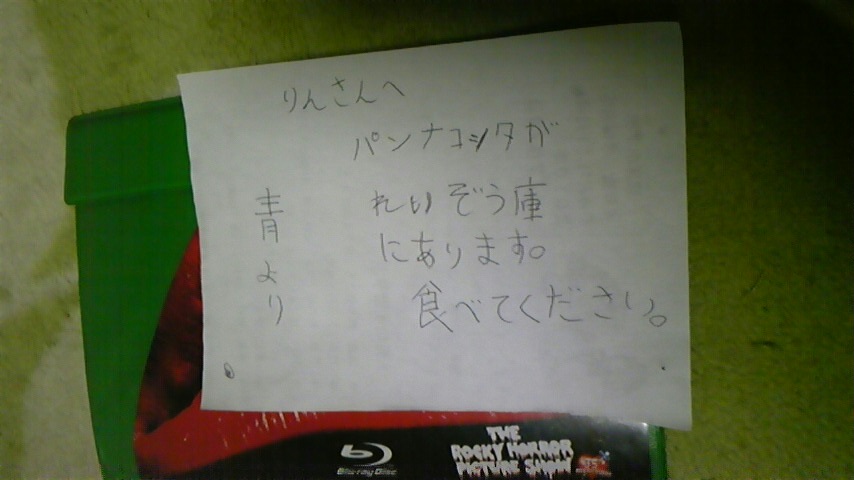 りんさんへ
パンナコッタが
れいぞう庫
にあります。
食べてください。
青より
Blu-ray Disc
THE
ROCKY HORROR
PICTURE SHOW